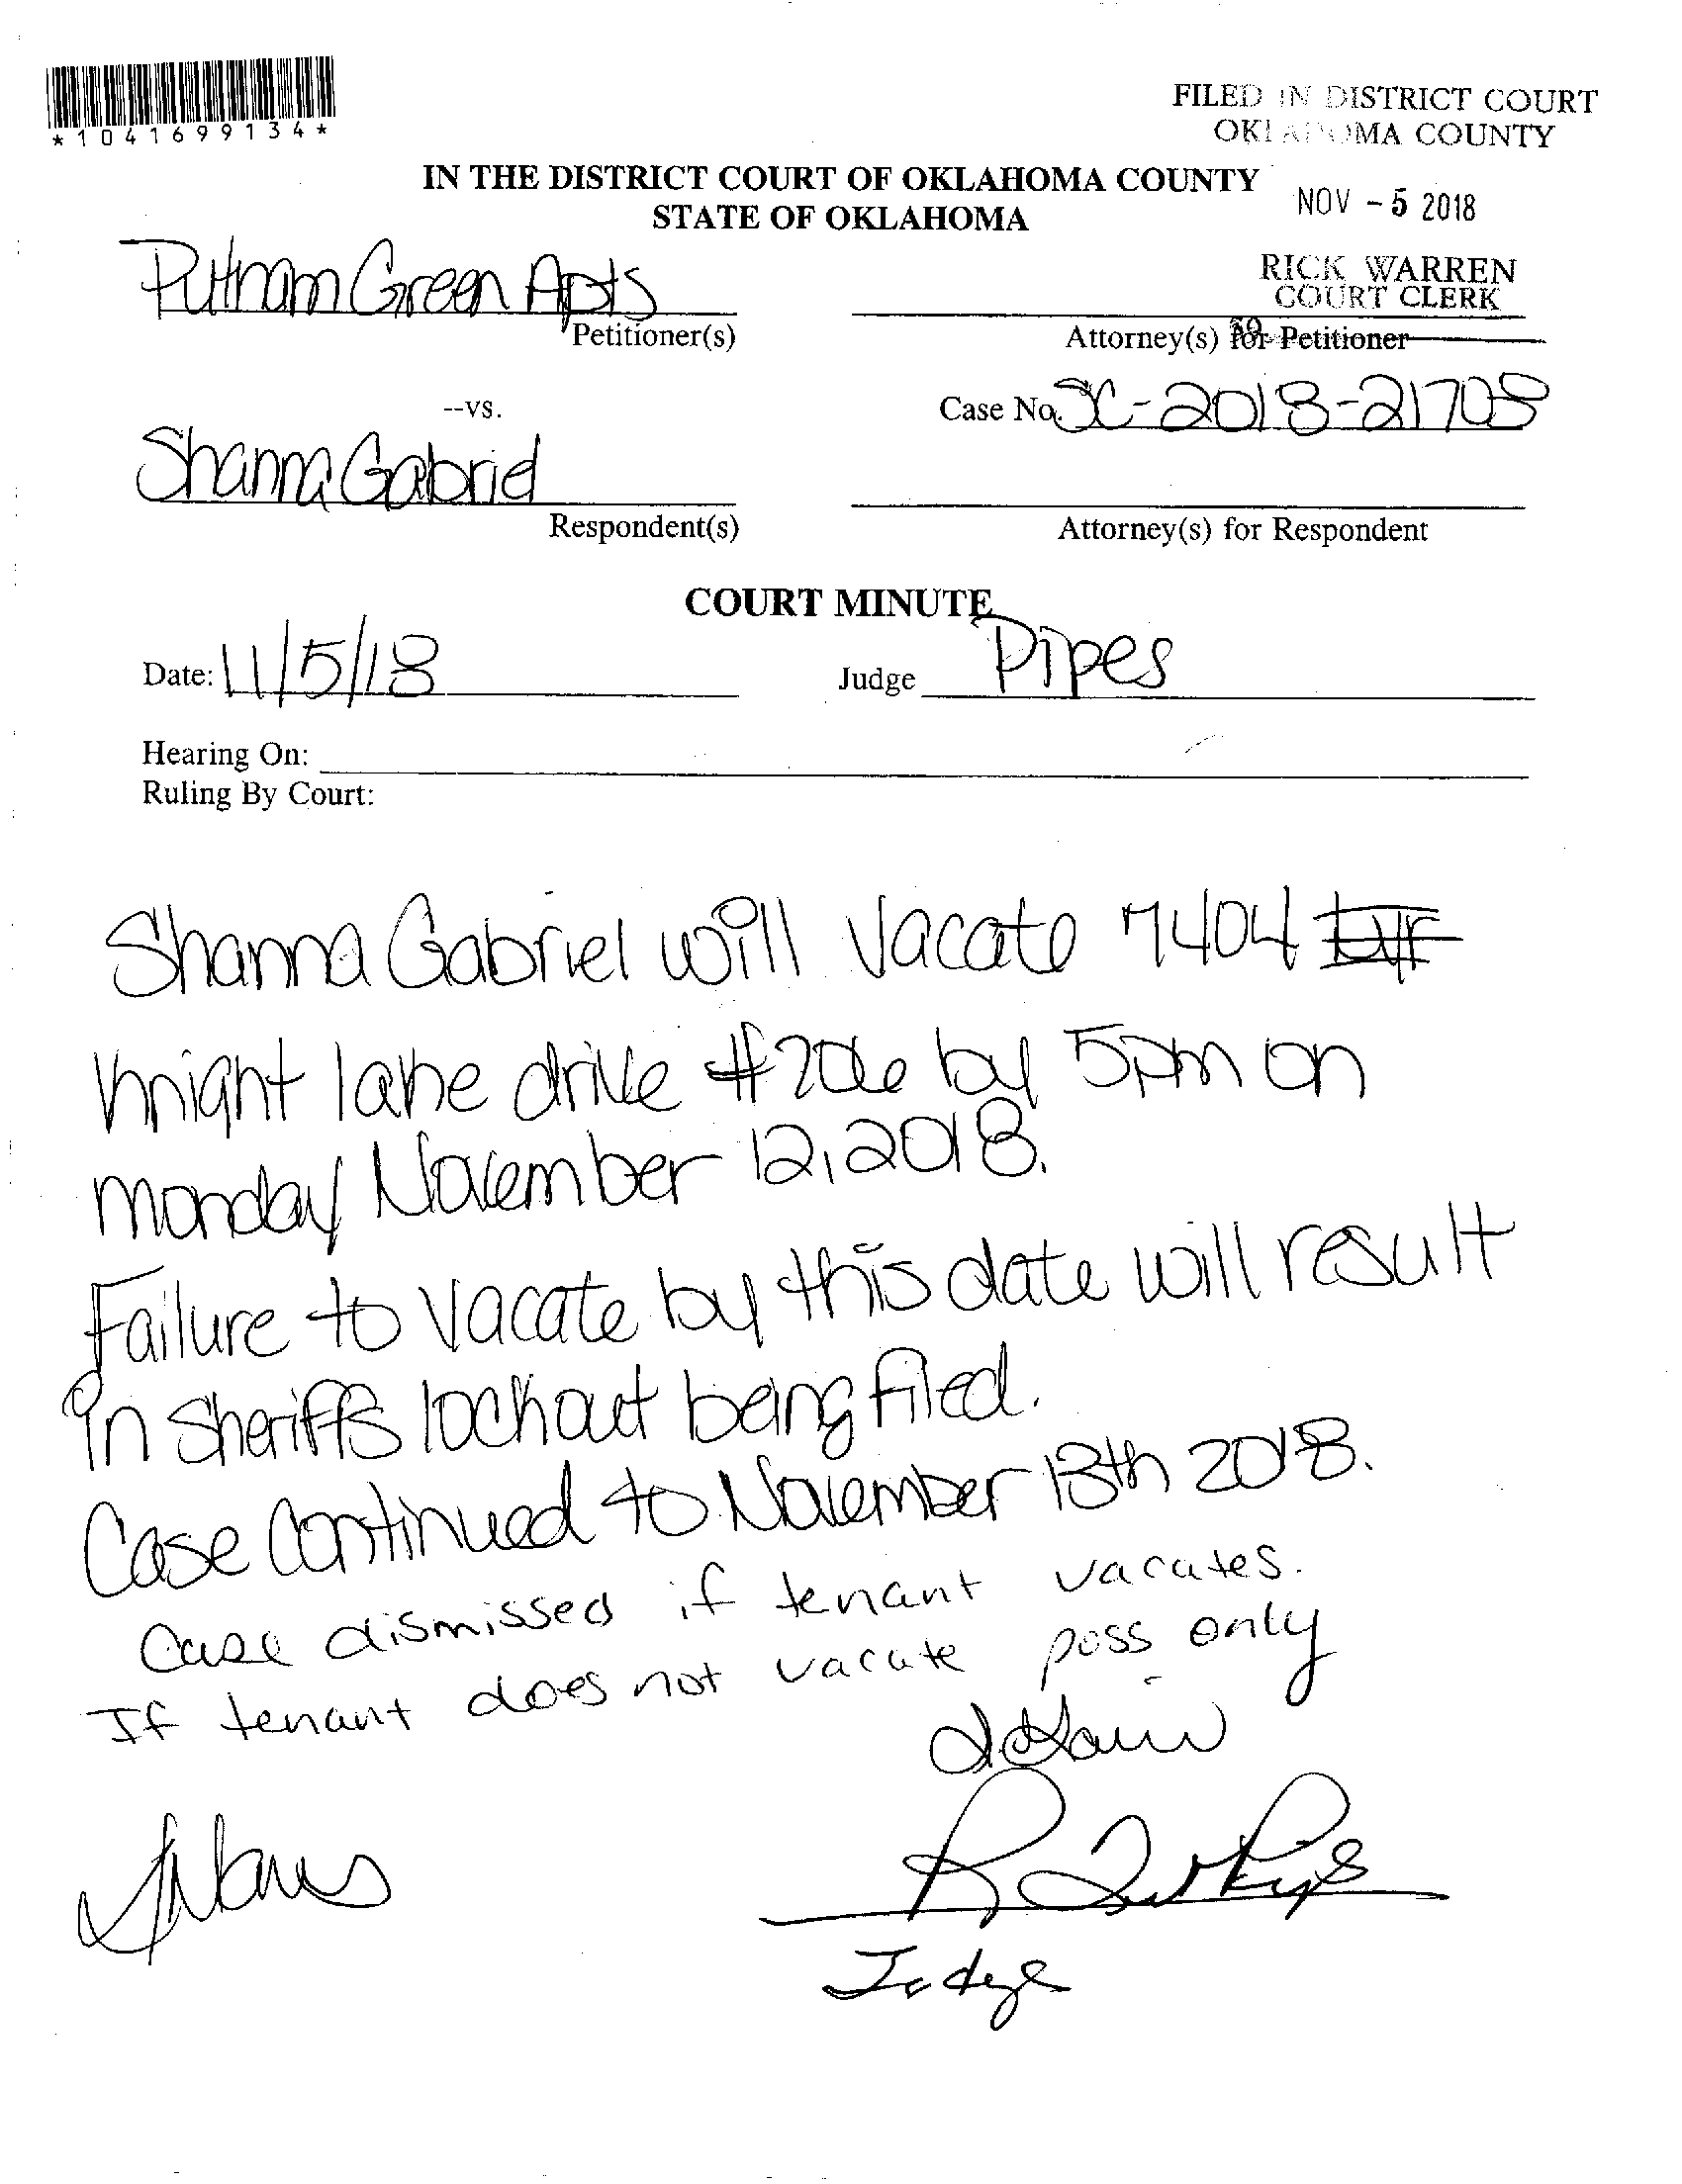 *1041699134*
FILED IN DISTRICT COURT
OKLAHOMA COUNTY
IN THE DISTRICT COURT OF OKLAHOMA COUNTY
STATE OF OKLAHOMA
NOV - 5 2018
RICK WARREN
COURT CLERK
Putnam Green Apts
Petitioner(s)
Attorney(s) for Petitioner
--vs.
Case No. SC-2018-21708
Shanna Gabriel
Respondent(s)
Attorney(s) for Respondent
COURT MINUTE
Date: 11/5/18
Judge Pipes
Hearing On:
Ruling By Court:
Shanna Gabriel will vacate 7404
knight lake drive #206 by 5pm on
monday November 12, 2018.
Failure to vacate by this date will result
in Sheriffs lockout being filed.
Case Continued to November 13th 2018.
Case dismissed if tenant vacates.
If tenant does not vacate poss only
Judge